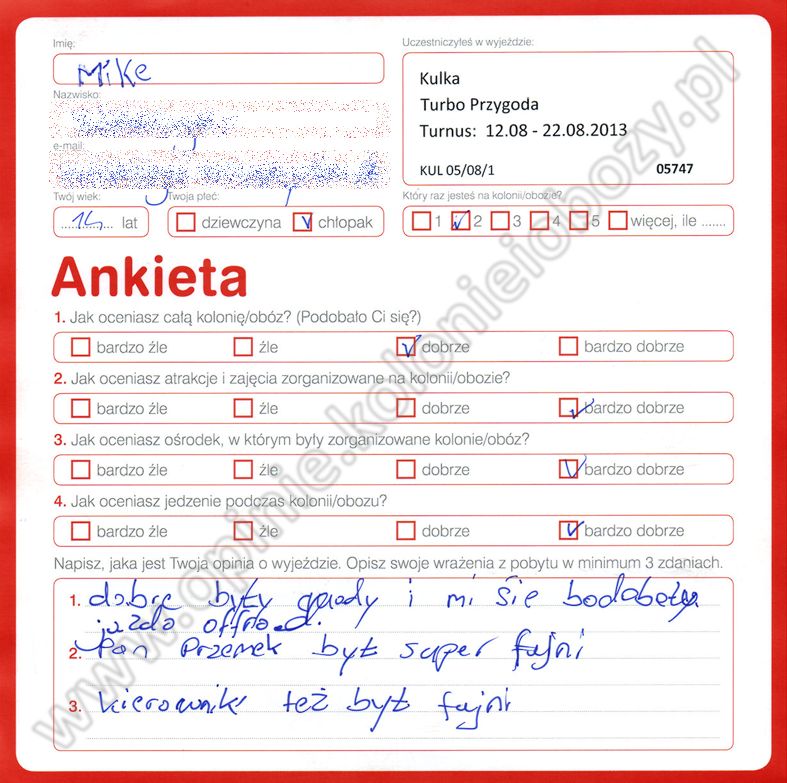 Imię:
Mike
Uczestniczyłeś w wyjeździe:
Kulka
Turbo Przygoda
Turnus: 12.08 - 22.08.2013
KUL 05/08/1 05747
Nazwisko:
e-mail:
Twój wiek: Twoja płeć:
14 lat dziewczyna chłopak
Który raz jesteś na kolonii/obozie?
1 2 3 4 5 więcej, ile .......
Ankieta
1. Jak oceniasz całą kolonię/obóz? (Podobało Ci się?)
bardzo źle źle dobrze bardzo dobrze
2. Jak oceniasz atrakcje i zajęcia zorganizowane na kolonii/obozie?
bardzo źle źle dobrze bardzo dobrze
3. Jak oceniasz ośrodek, w którym były zorganizowane kolonie/obóz?
bardzo źle źle dobrze bardzo dobrze
4. Jak oceniasz jedzenie podczas kolonii/obozu?
bardzo źle źle dobrze bardzo dobrze
Napisz, jaka jest Twoja opinia o wyjeździe. Opisz swoje wrażenia z pobytu w minimum 3 zdaniach.
1. dobre były i mi sie
offroad.
2. Pan Przemek był super fajni
3. kierownik też był fajni
www.opinie.kolonieiobozy.pl